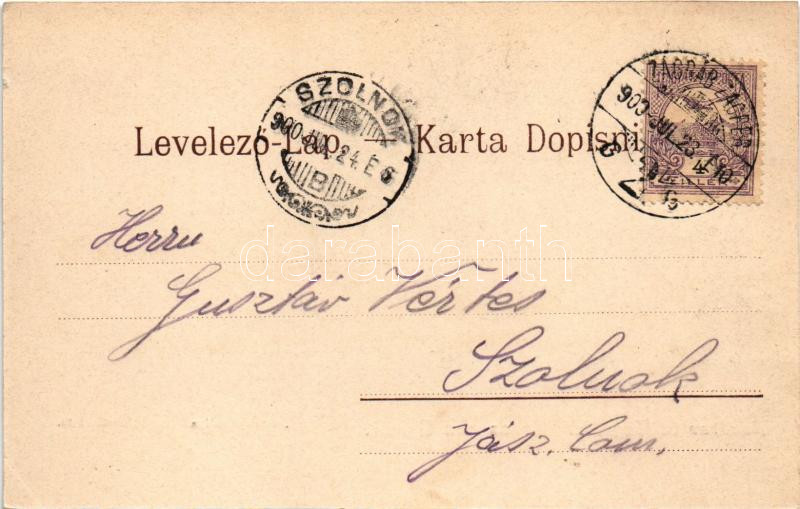 Levelező-Lap. — Karta Dopisni
SZOLNOK
900 JUL. 24. E 6
B
ZÁGRÁB ZAGREB
900 JUL. 23.
darabanth
Herrn
Gusztáv Vértes
Szolnok
Jász. Com.